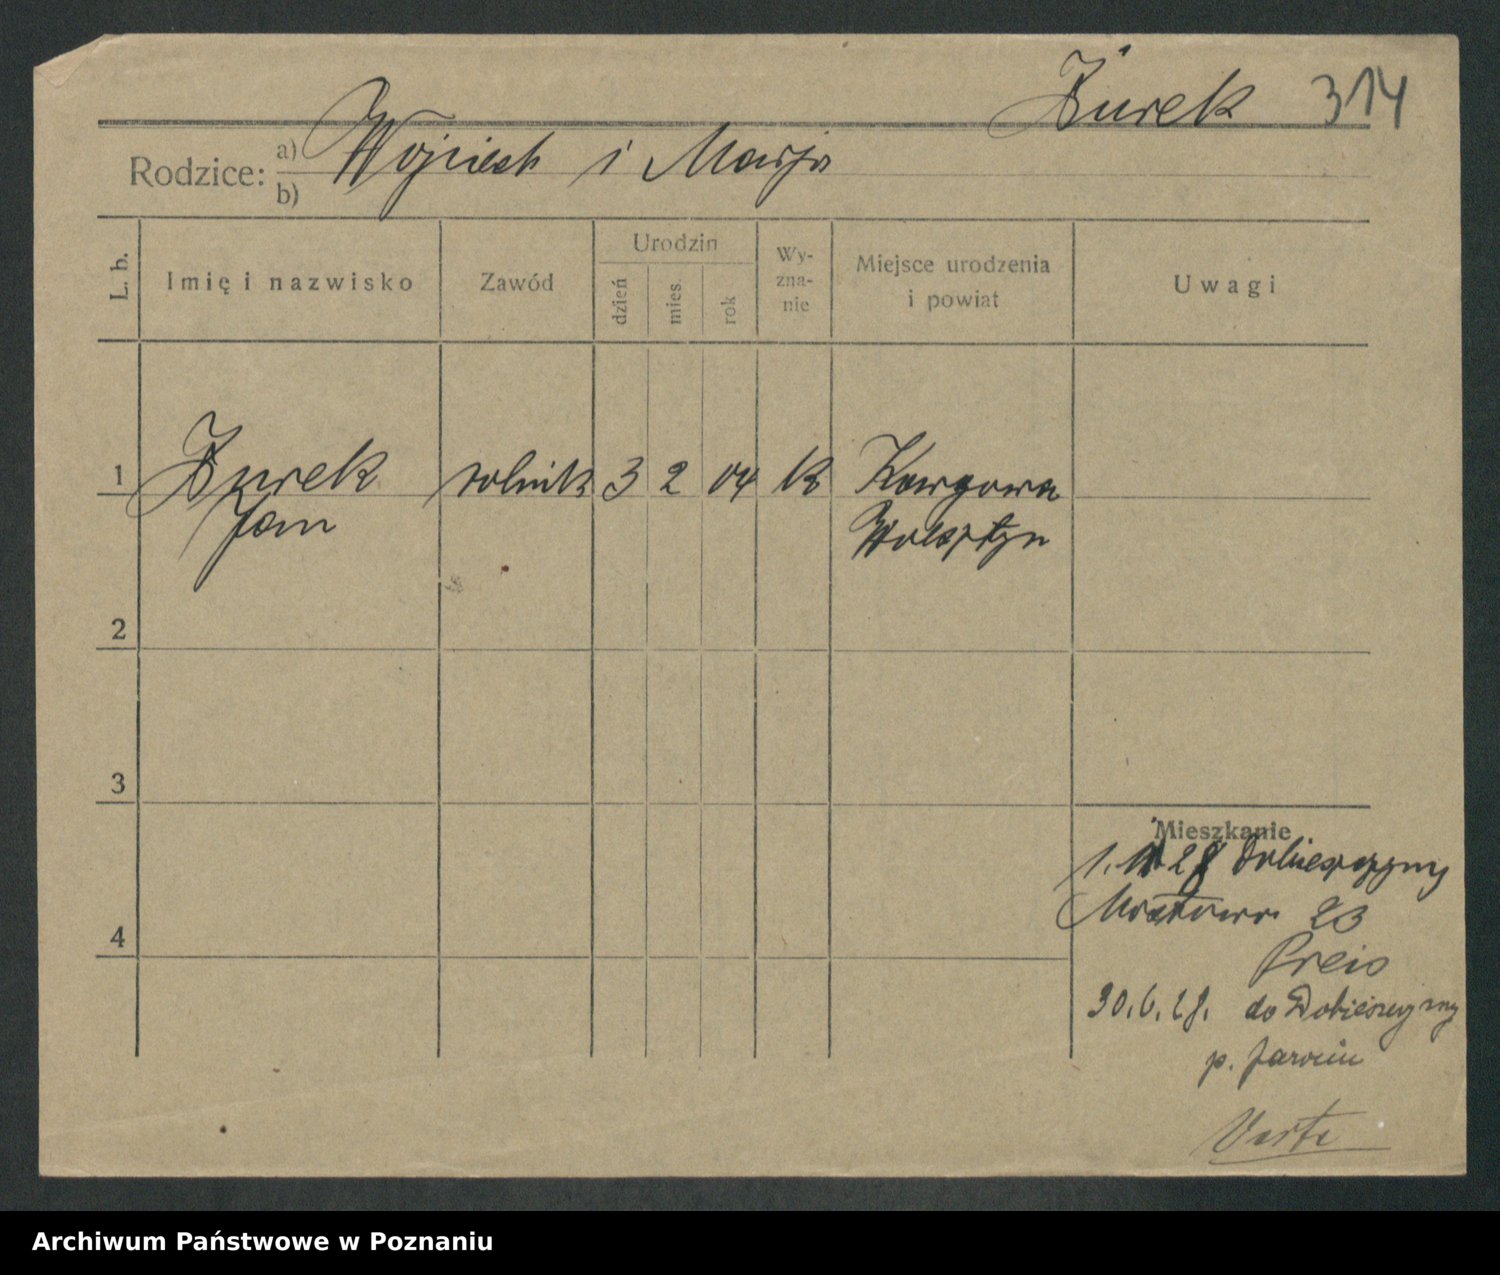 Żurek 314
Rodzice: a) Wojciech i Marja
b)
L. b. Imię i nazwisko Zawód Urodzin dzień mies. rok Wy-zna-nie Miejsce urodzenia i powiat Uwagi
1 Żurek rolnik 3 2 04 k Kargowa
Jan Wolsztyn
2
3
Mieszkanie
1. 28 Dobieszczyzny
Mostowa 23
4
Preis
30.6.28. do Dobieszczyzny
p. Jarocin
Verte
Archiwum Państwowe w Poznaniu